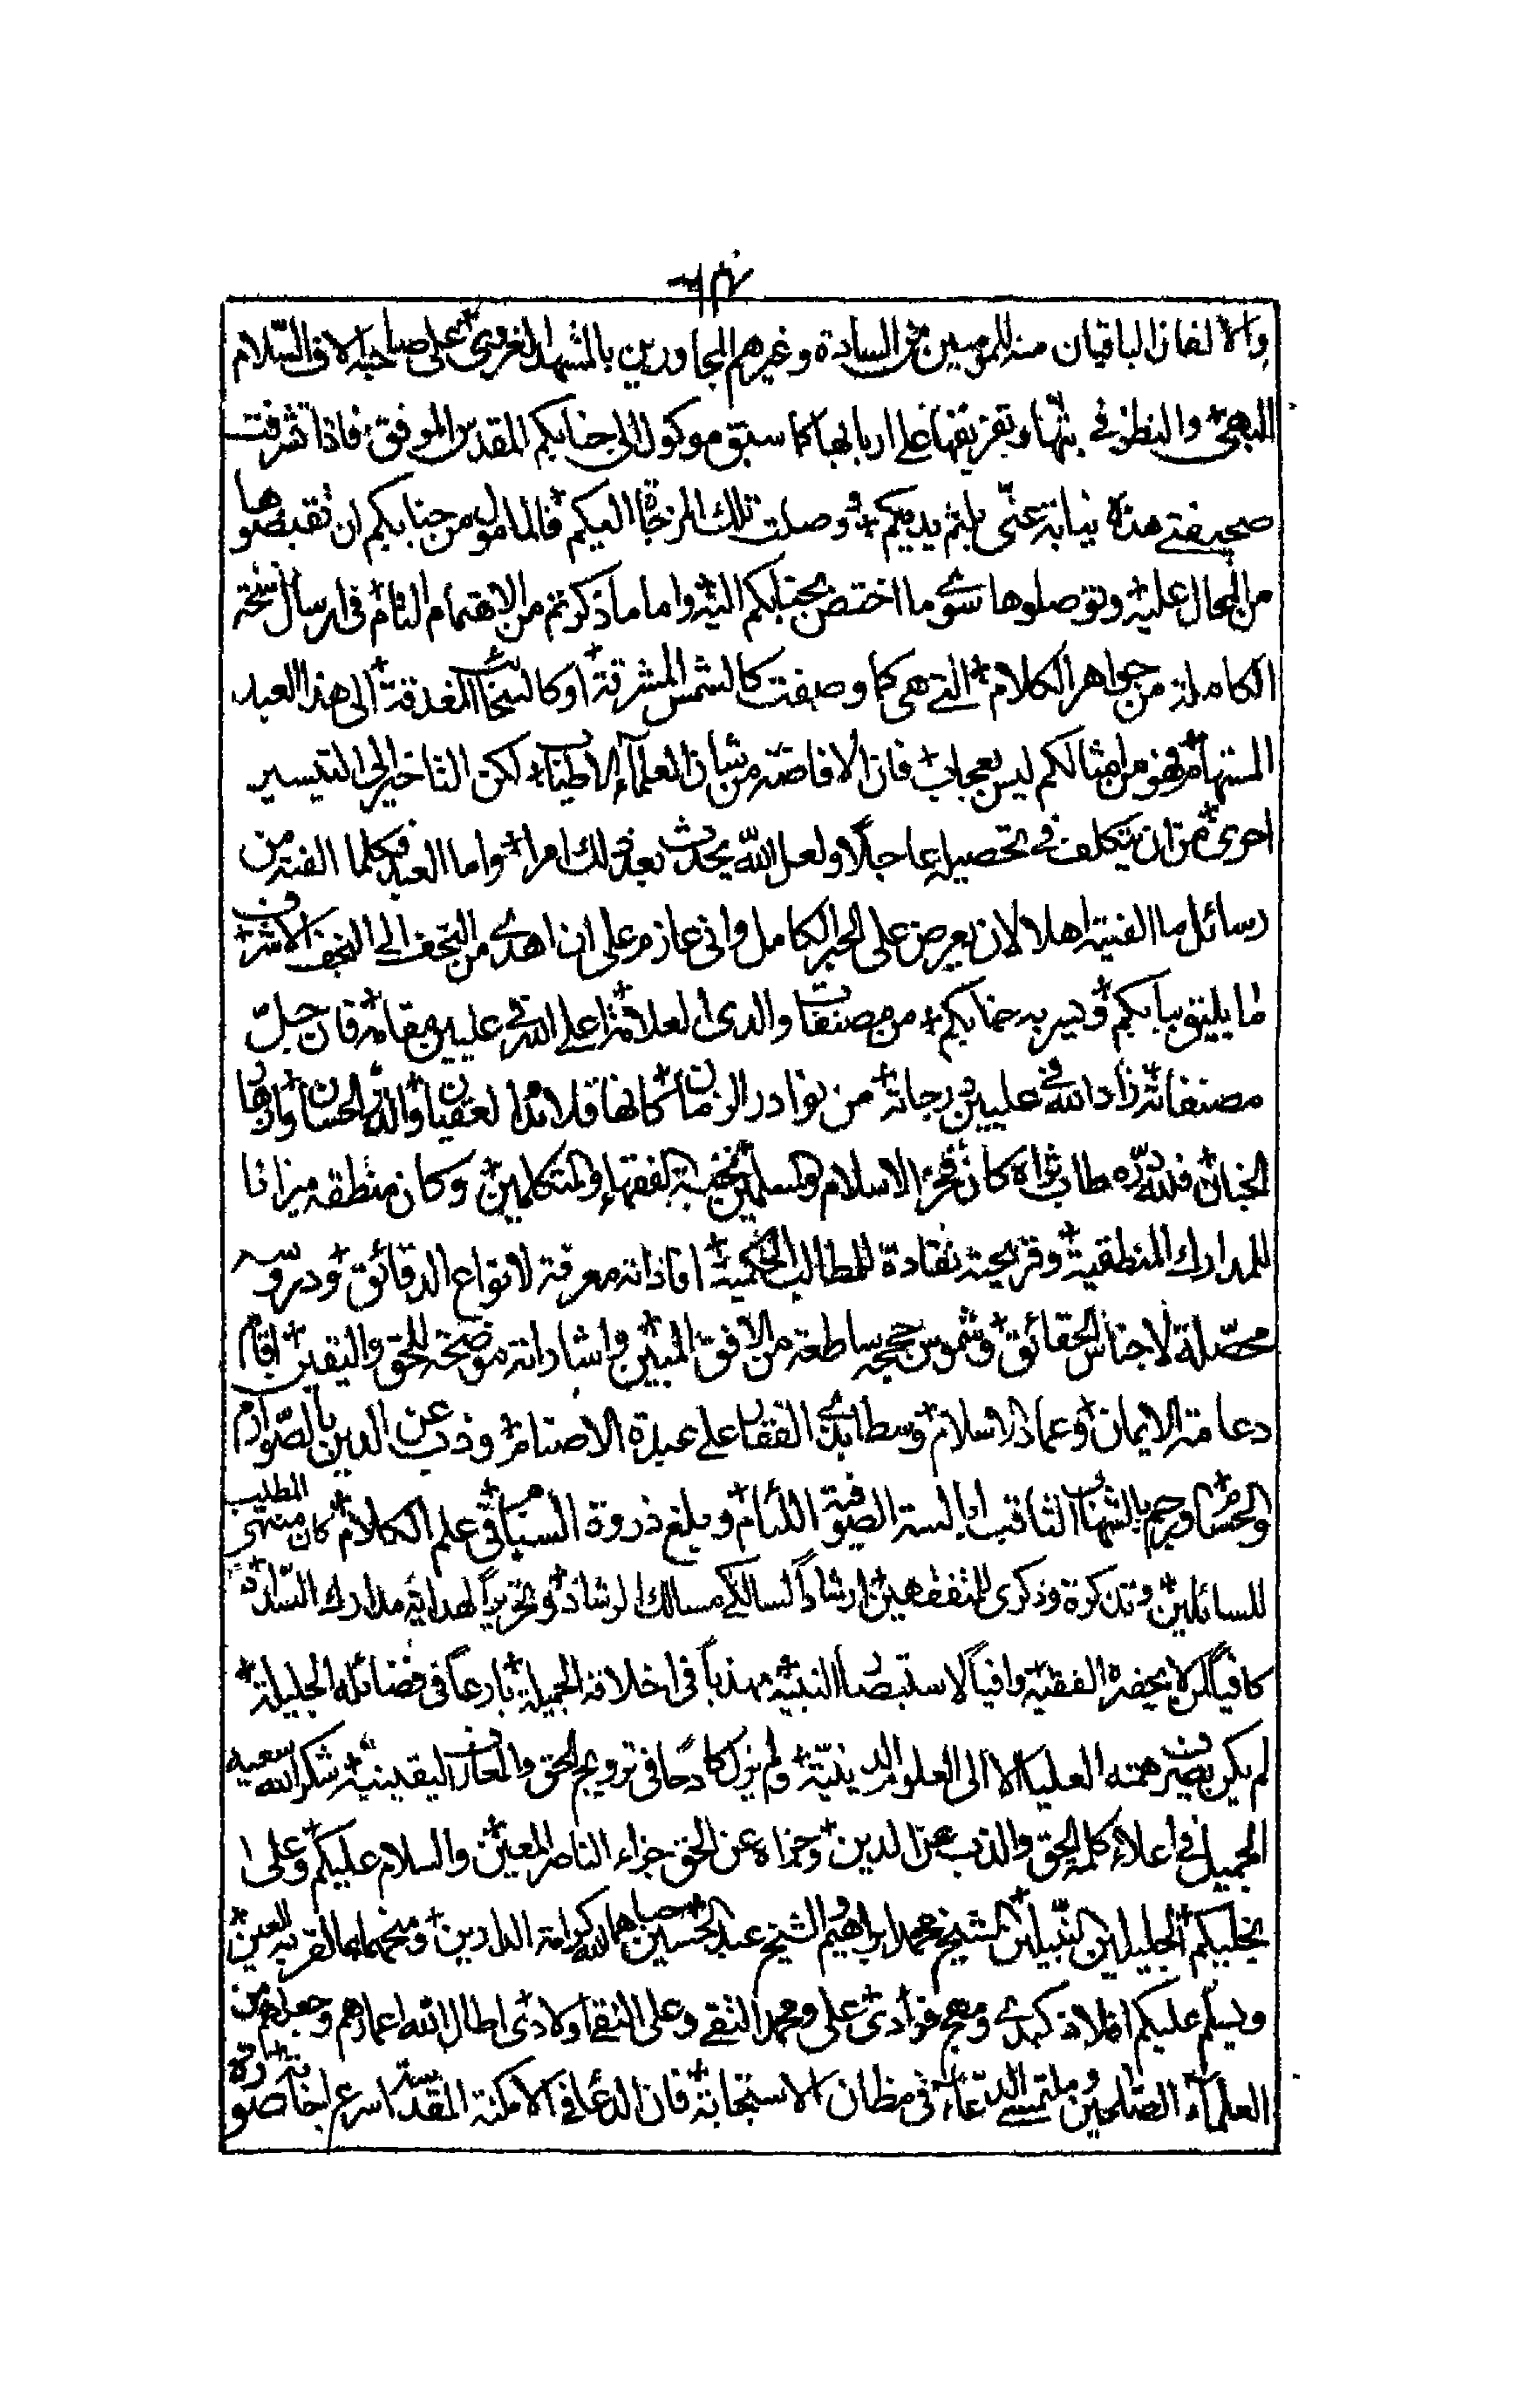 والالفان الباقيان منه للمومنين من السادة وغيرهم المجاورين بالمشهد الغروي على صاحبه الاف السلام
البهي والنظر في بثها وتفريقها على اربابها كما سبق موكول الى جنابكم المقدس الموفق فاذا تشرفت
صحيفتي هذه نيابة عني بلثم يديكم ووصلت تلك المزجاة اليكم فالمامول من جنابكم ان تقبضوها
من المحال عليه وتوصلوها سوى ما اختص بجنابكم اليه واما ما ذكرتم من الاهتمام التام في ارسال نسخة
الكاملة من جواهر الكلام التي هي كما وصفت كالشمس المشرقة او كالسحاب المغدقة الى هذا العبد
المستهام فهو من امثالكم ليس بعجاب فان الافاضة من شان العلماء الاطياب لكن التاخير الى التيسير
احرى من ان يتكلف في تحصيله عاجلا ولعل الله يحدث بعد ذلك امرا واما العبد فكلما الفته من
رسائل ما الفيته اهلا لان يعرض على الحبر الكامل واني عازم على ان اهدي من التحف الى النجف الاشرف
ما يليق ببابكم ويسر به جنابكم من مصنفات والدي العلامة اعلى الله في عليين مقامه فان جل
مصنفاته زاد الله في عليين درجاته من نوادر الزمان كانها قلائد العقيان والدر الحسان وازهار
الجنان فلله دره طاب ثراه كان فخر الاسلام والمسلمين نخبة الفقهاء والمتكلمين وكان منطقه ميزانا
للمدارك المنطقية وقريحته نقادة للمطالب الحكمية افاداته معرفة لانواع الدقائق ودروسه
محصلة لاجناس الحقائق وشموس حججه ساطعة من الافق المبين واشاراته موضحة للحق واليقين اقام
دعامة الايمان وعماد الاسلام وسطا بذي الفقار على عبدة الاصنام وذب عن الدين بالصوارم
والحسام ورجم بالشهاب الثاقب ابالسة الصوفية اللئام وبلغ ذروة السنام في علم الكلام كان منتهى المطلب
للسائلين وتذكرة وذكرى للمتفقهين ارشادا لسالكي مسالك الرشاد وتحريرا لهداية مدارك السداد
كافيا لمن لا يحضره الفقيه وافيا لاستبصار النبيه مهذبا في اخلاقه الجميلة بارعا في فضائله الجليلة
لم يكن يصرف همته العليا الا الى العلوم الدينية ولم يزل كادحا في ترويج الحق والمعارف اليقينية شكر الله سعيه
الجميل في اعلاء كلمة الحق والذب عن الدين وجزاه عن الحق جزاء الناصر المعين والسلام عليكم وعلى
نجليكم الجليلين النبيلين الشيخ محمد ابراهيم والشيخ عبد الحسين حباهما الله كرامة الدارين ومنحهما بهما القريه العين
ويسلم عليكم افلاذ كبدي ومهج فؤادي علي ومحمد التقي وعلي النقي اولادي اطال الله اعمارهم وجعلهم من
العلماء الصالحين وملتمسي الدعاء في مظان الاستجابة فان الدعاء في الامكنة المقدسة اسرع